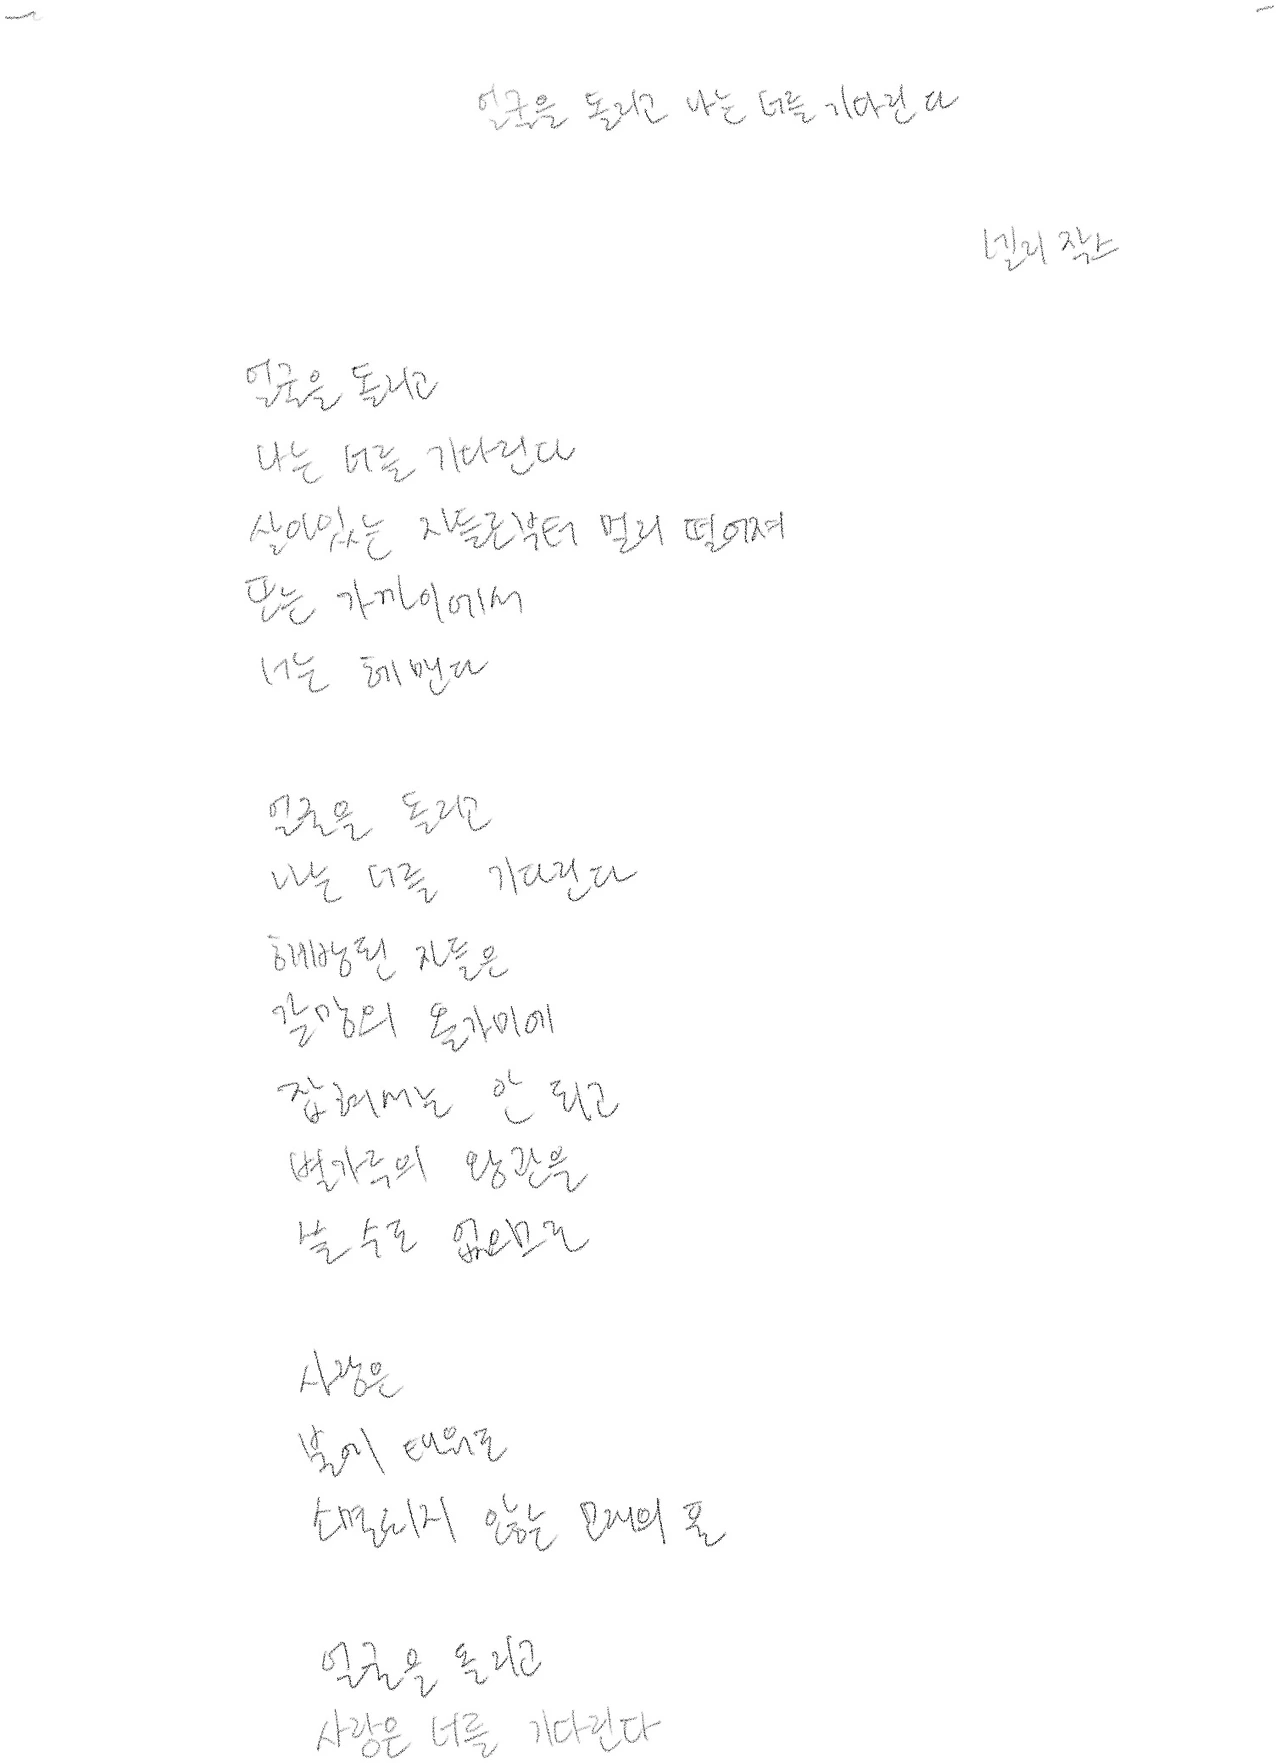 얼굴을 돌리고 나는 너를 기다린다
넬리 작스
얼굴을 돌리고
나는 너를 기다린다
살아있는 자들로부터 멀리 떨어져
또는 가까이에서
너는 헤맨다
얼굴을 돌리고
나는 너를 기다린다
해방된 자들은
갈망의 올가미에
잡혀서는 안 되고
별가루의 왕관을
쓸 수도 없으므로
사랑은
불에 태워도
소멸되지 않는 모래의 홀
얼굴을 돌리고
사랑은 너를 기다린다